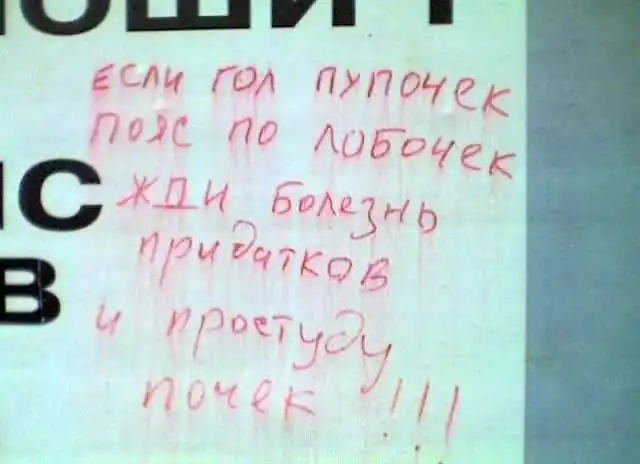 ОШИТ
ЕСЛИ ГОЛ ПУПОЧЕК
ПОЯС ПО ЛОБОЧЕК
ЖДИ БОЛЕЗНЬ
ПРИДАТКОВ
И ПРОСТУДУ
ПОЧЕК !!!
ИС
В